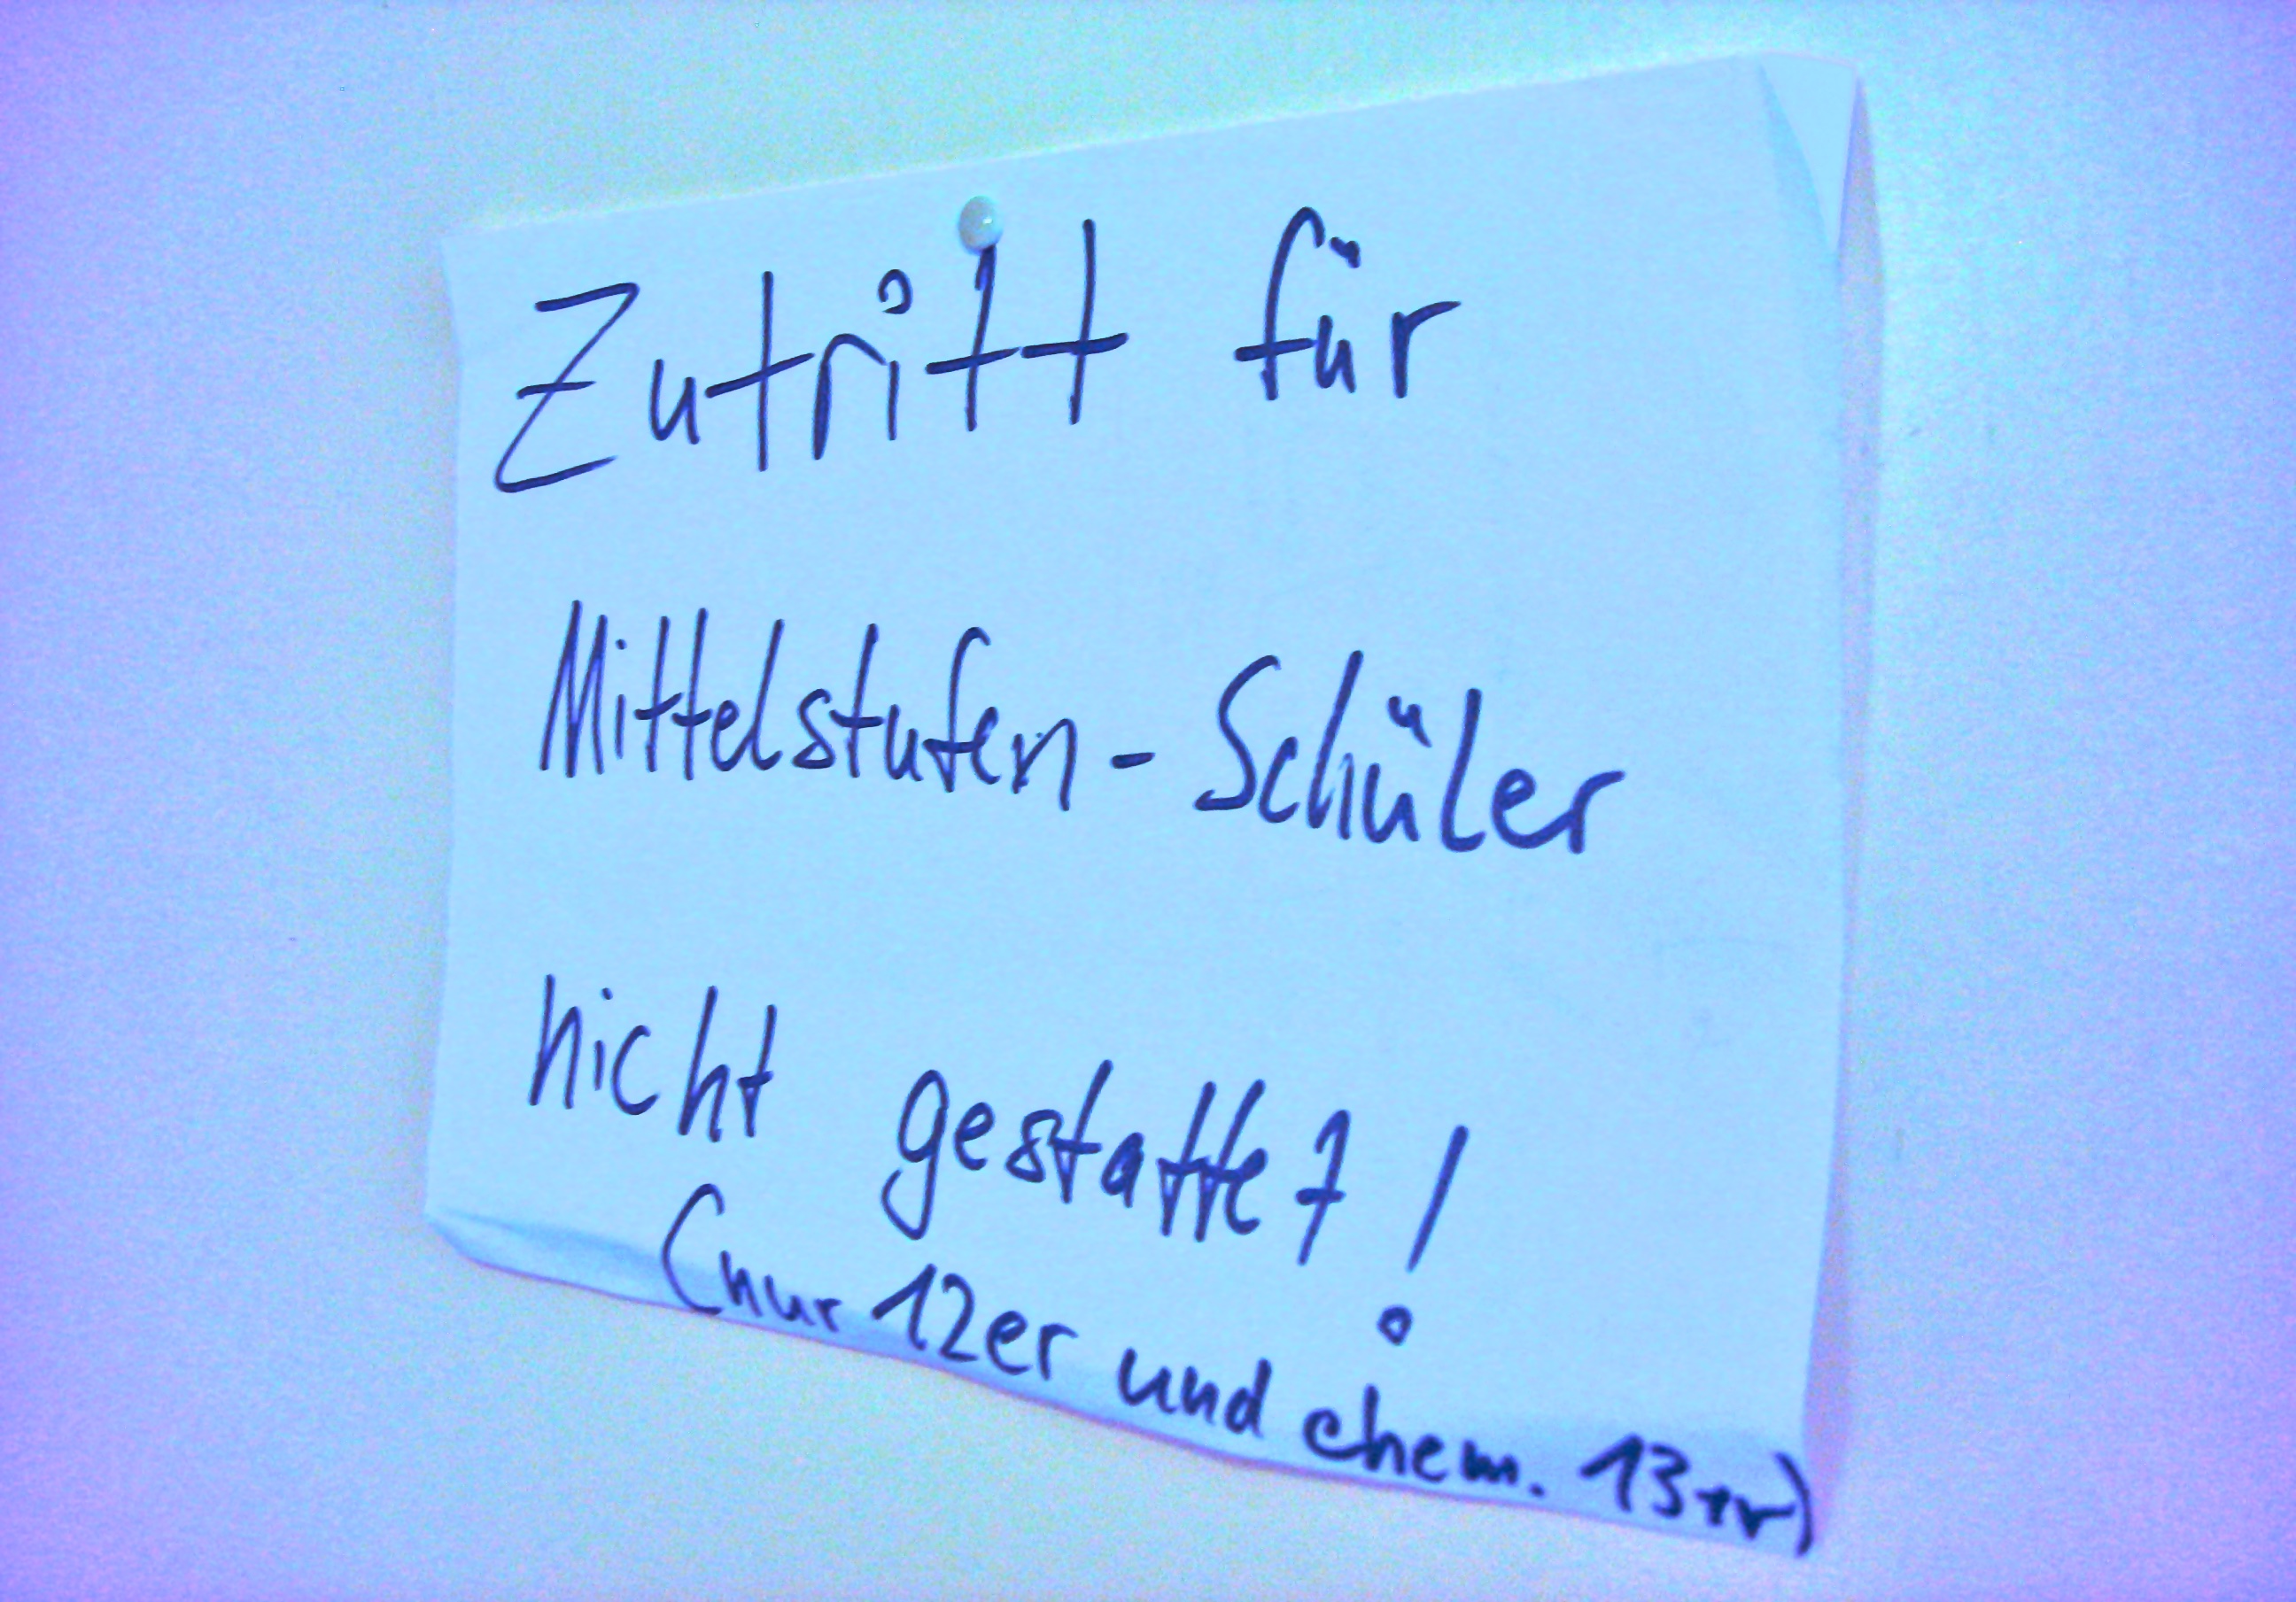 Zutritt für
Mittelstufen-Schüler
nicht gestattet!
(nur 12er und ehem. 13er)